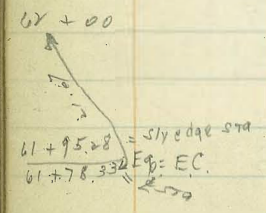 62 + 00
61 + 95.28 = Sly edge sta
61 + 78.33 Eq = E.C.
= ℄ sta